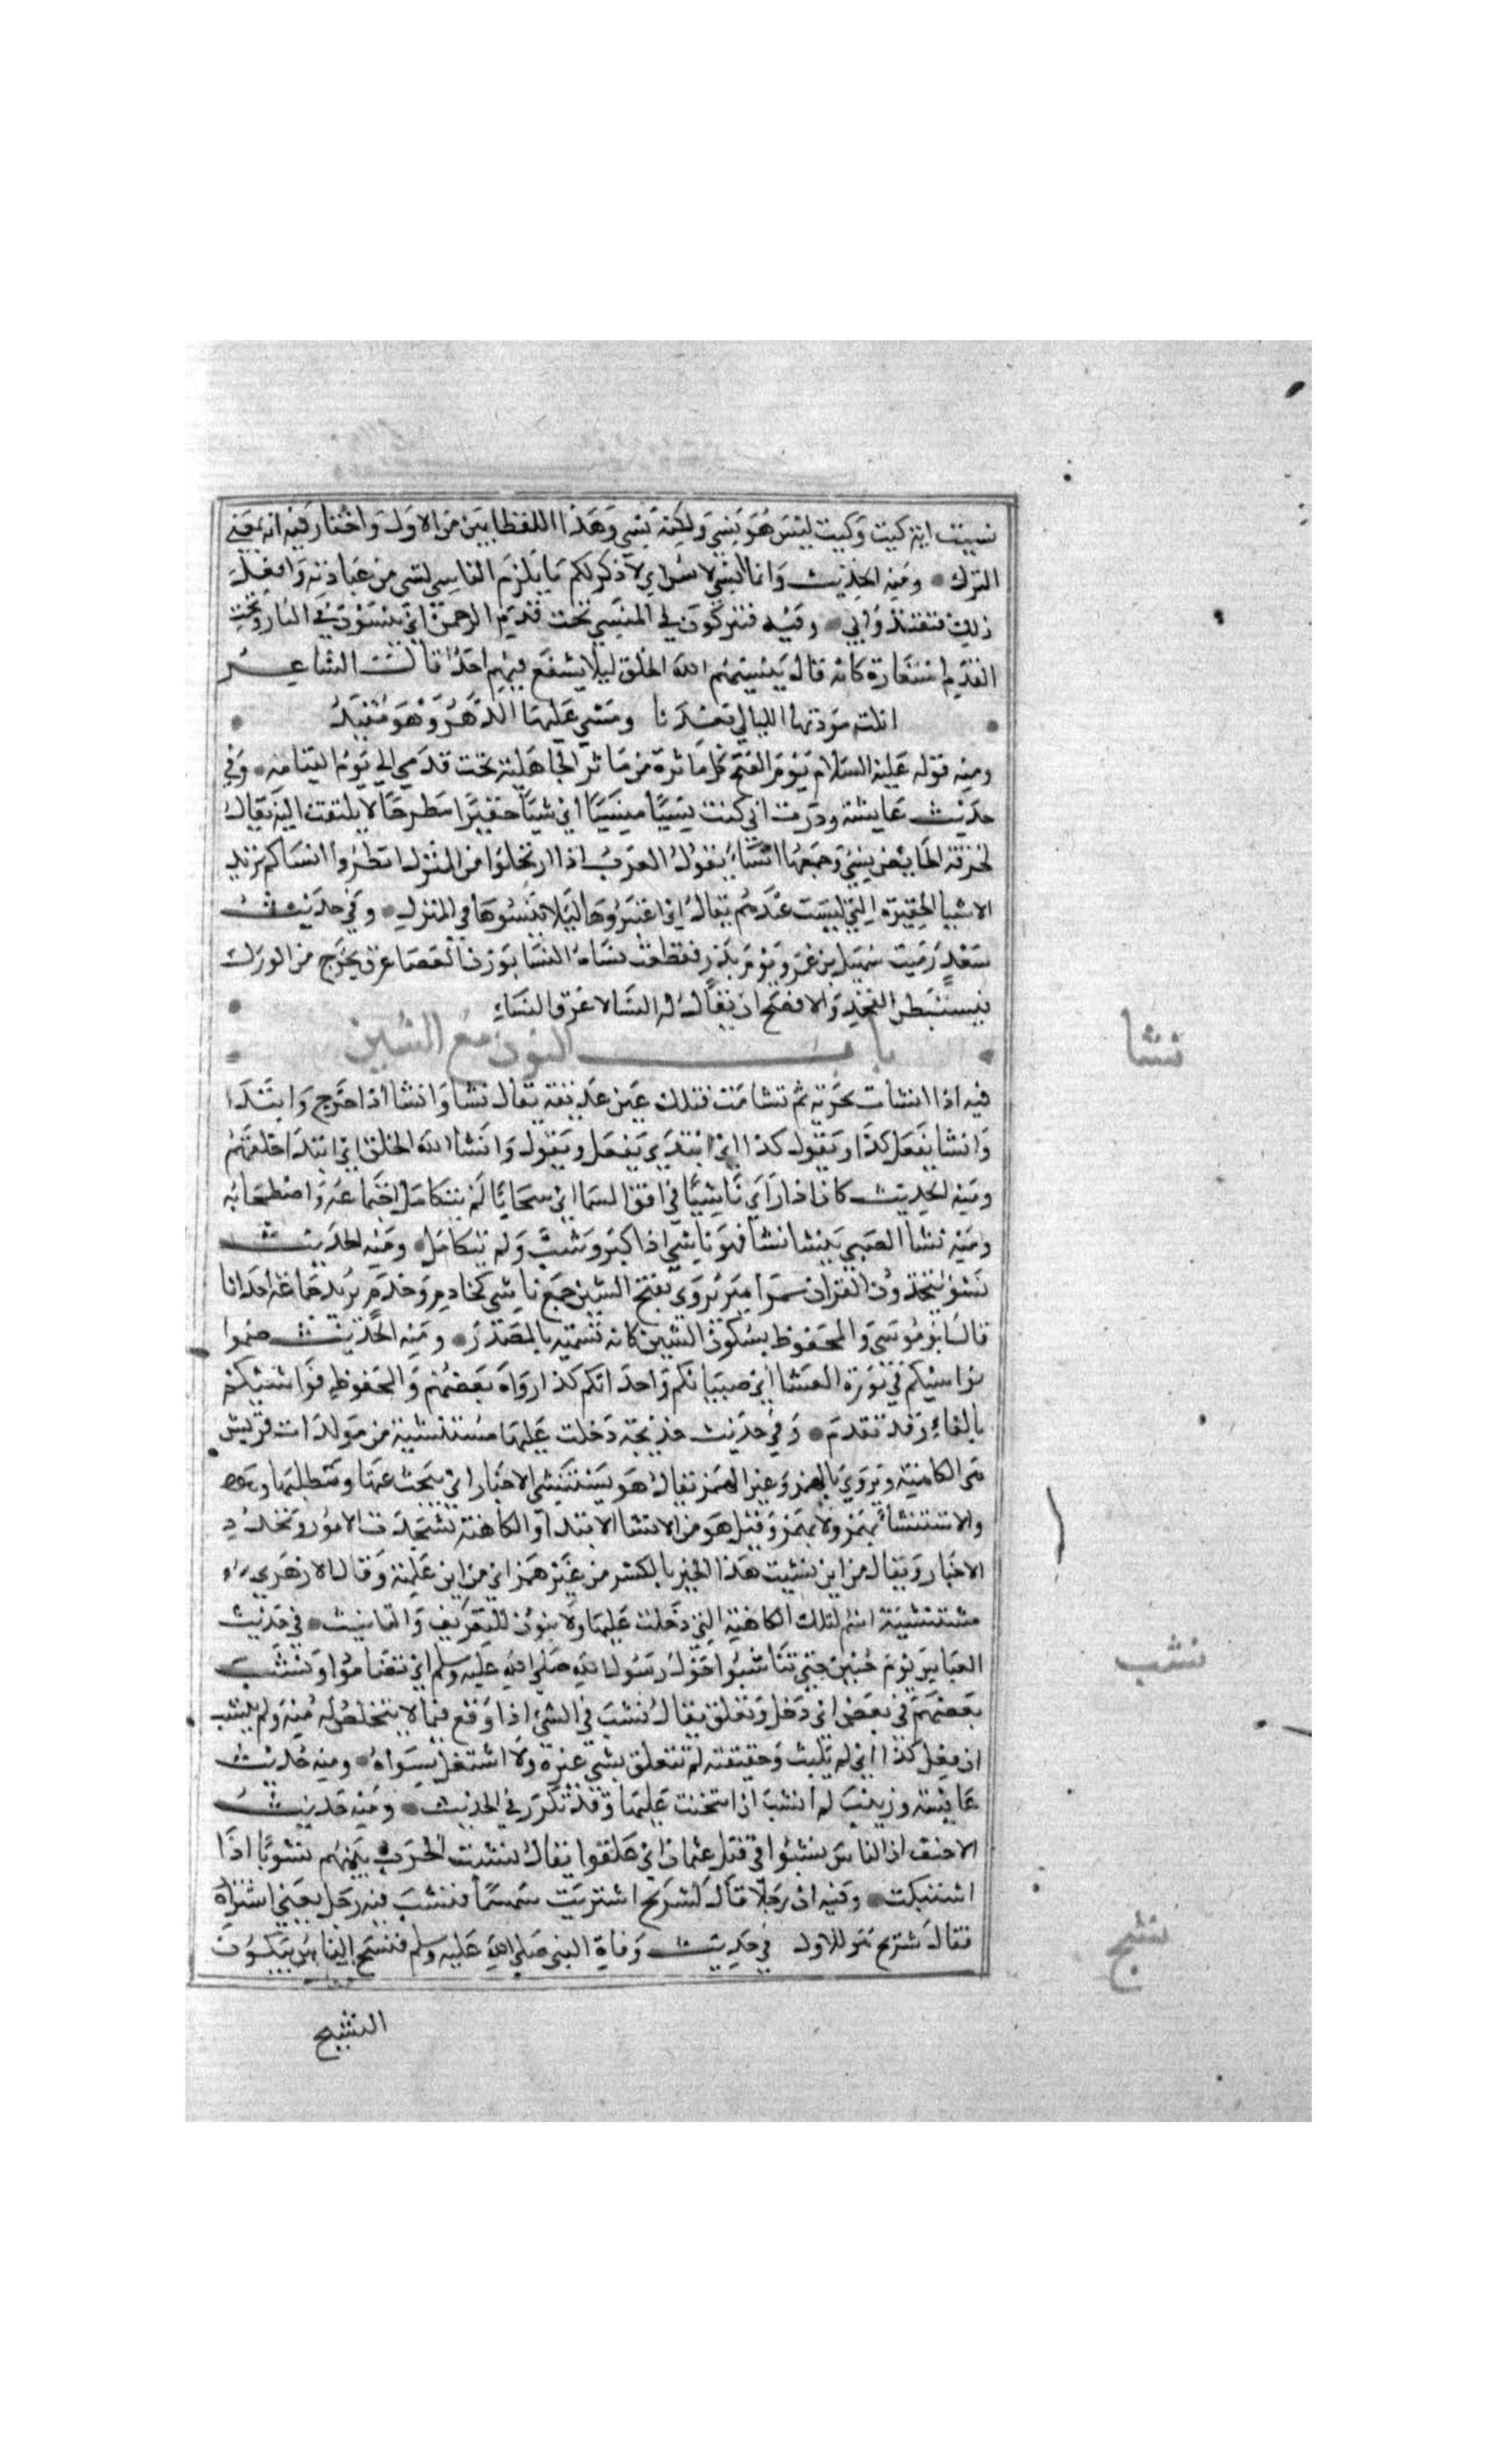 نسيت اية كيت وكيت ليس هو نسي ولكنه نسي وهذا اللفظ ابين من الاول واختار فيه انه بمعنى
الترك ومنه الحديث وانما انسى لاسن اي لاذكر لكم ما يلزم الناسي لشي من عبادته وافعل
ذلك فتقتدوا بي وفيه فتتركون في المنسي تحت قدم الرحمن اي ينسون في النار وتحت
القدم استعارة كانه قال ينسيهم الله الخلق ليلا يشفع فيهم احد قالت الشاعر
ابلت مودتها الليالي بعدنا ومشى عليها الدهر وهو مقيد
ومنه قوله عليه السلام يوم الفتح كل ماثرة من ماثر الجاهلية تحت قدمي الي يوم القيامه وفي
حديث عايشة وددت اني كنت نسيا منسيا اي شيا حقيرا مطرحا لا يلتفت اليه يقال
لخرقة الحايض نسي وجمعها انساء يقول العرب اذا ارتحلوا من المنزل انظروا انساكم نريد
الاشيا الحقيرة التي ليست عندهم ببال اي اعتبروها ليلا تنسوها في المنزل وفي حديث
سعد رميت سهيل بن عمرو يوم بدر فقطعت نساه النسا بوزن العصا عرق يخرج من الورك
فيستبطن الفخذ والافصح ان يقال له النسا لا عرق النساء
باب النون مع الشين
نشا
فيه اذا انشات بحرية ثم تشامت فتلك عين غديقة يقال نشا وانشا اذا خرج وابتدا
وانشا يفعل كذا ويقول كذا اي ابتدي يفعل ويقول وانشا الله الخلق اي ابتدا خلقهم
ومنه الحديث كان اذا راي ناشيا في افق السما اي سحابا لم يتكامل اجتماعه واصطحابه
ومنه نشا الصبي ينشا نشا فهو ناشي اذا كبر وشب ولم يتكامل ومنه الحديث
نشو يتخذون القران مزامير يروي بفتح الشين جمع ناشي كخادم وخدم يريد جماعة احداثا
قال ابو موسى والمحفوظ بسكون الشين كانه تسميه بالمصدر ومنه الحديث ضموا
نواشيكم في ثورة العشا اي صبيانكم واحداثكم كذا رواه بعضهم والمحفوظ فواشيكم
بالفاء وقد تقدم وفي حديث خديجة دخلت عليها مستنشية من مولدات قريش
هي الكاهنة ويروي بالهمز وغير الهمز يقال هو يستنشي الاخبار اي يبحث عنها ويتطلبها
والاستنشا يهمز ولا يهمز وقيل هو من الانشا الابتدا والكاهنة تستحدث الامور وتجدد
الاخبار ويقال من اين نشيت هذا الخبر بالكسر من غير همز اي من اين علمته وقال الازهري
مستنشية اسم لتلك الكاهنة التي دخلت عليها ولا ينون للتعريف والتانيث في حديث
نشب
العباس يوم حنين حتى تناشبوا حول رسول الله صلى الله عليه وسلم اي تضاموا ونشب
بعضهم في بعض اي دخل وتعلق يقال نشب في الشي اذا وقع فيما لا يتخلص له منه ولم ينشب
ان فعل كذا اي لم يلبث وحقيقته لم يتعلق بشي غيره ولا اشتغل بسواه ومنه حديث
عايشة وزينب لم انشب ان اثخنت عليها وقد تكرر في الحديث ومنه حديث
الاحنف ان الناس نشبوا في قتل عثمان اي علقوا يقال نشبت الحرب بينهم نشوبا اذا
اشتبكت وفيه ان رجلا قال لشريح اشتريت سمسما فنشب فيه رجل يعني اشتراه
فقال شريح هو للاول في حديث وفاة النبي صلى الله عليه وسلم فنشج الناس يبكون
نشج
النشيج